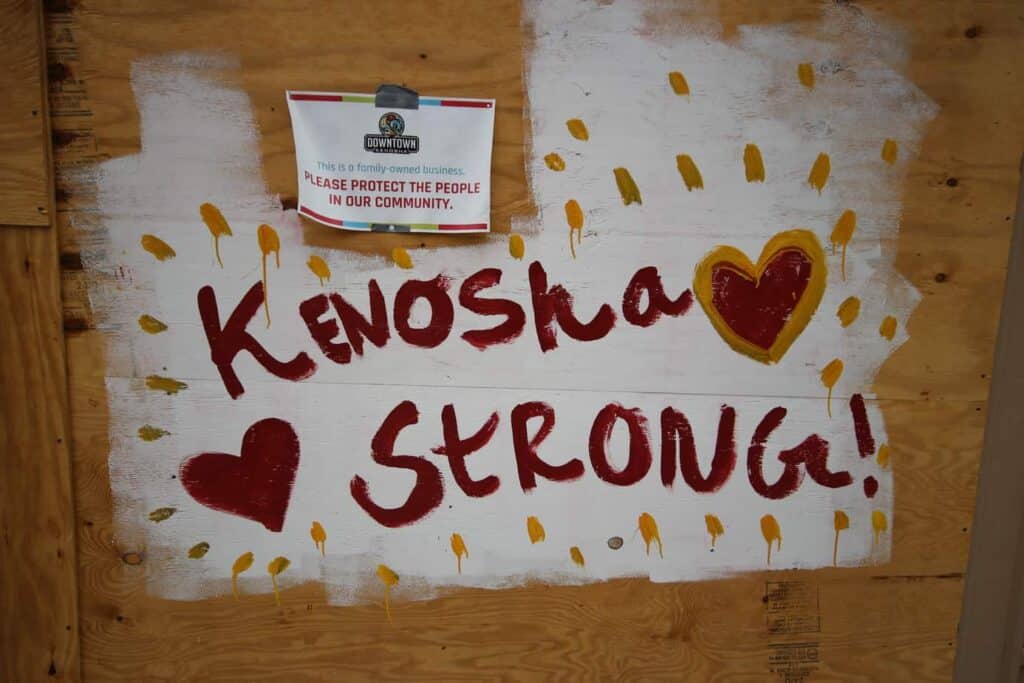 DOWNTOWN
KENOSHA
This is a family-owned business.
PLEASE PROTECT THE PEOPLE
IN OUR COMMUNITY.
KENOSha
StRONG!